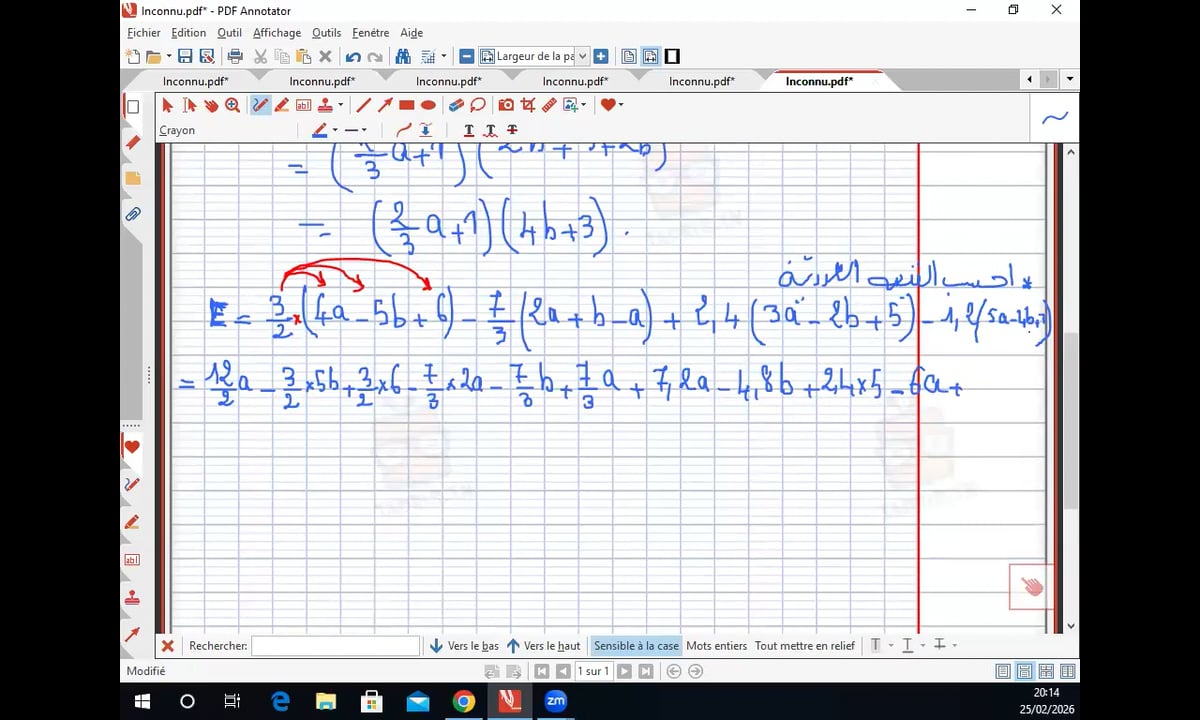 Inconnu.pdf* - PDF Annotator
Fichier Edition Outil Affichage Outils Fenétre Aide
Largeur de la pa
Inconnu.pdf* Inconnu.pdf* Inconnu.pdf* Inconnu.pdf* Inconnu.pdf* Inconnu.pdf*
Crayon
= (2/3 a+1)(2b+3+2b)
= (2/3 a+1)(4b+3).
* احسب التعبير العددية
E = 3/2 × (4a - 5b + 6) - 7/3 (2a + b - a) + 2,4 (3a - 2b + 5) - 1,2(5a-4b,
= 12/2 a - 3/2 × 5b + 3/2 × 6 - 7/3 × 2a - 7/3 b + 7/3 a + 7,2a - 4,8b + 2,4×5 - 6a +
Rechercher: Vers le bas Vers le haut Sensible à la case Mots entiers Tout mettre en relief
Modifié 1 sur 1
zm
20:14
25/02/2026